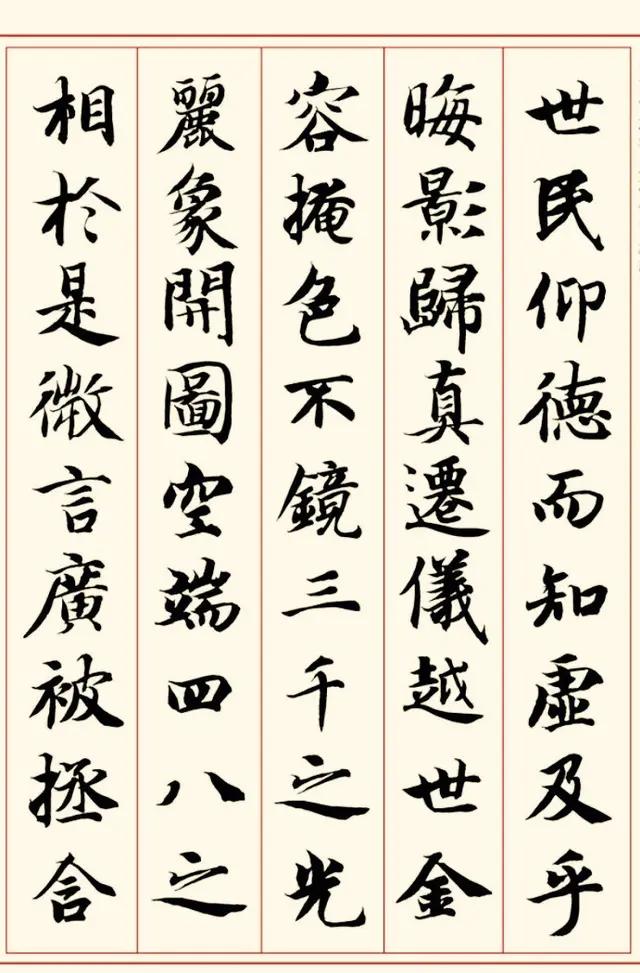 世民仰德而知虛及乎
晦影歸真遷儀越世金
容掩色不鏡三千之光
麗象開圖空端四八之
相於是微言廣被拯含